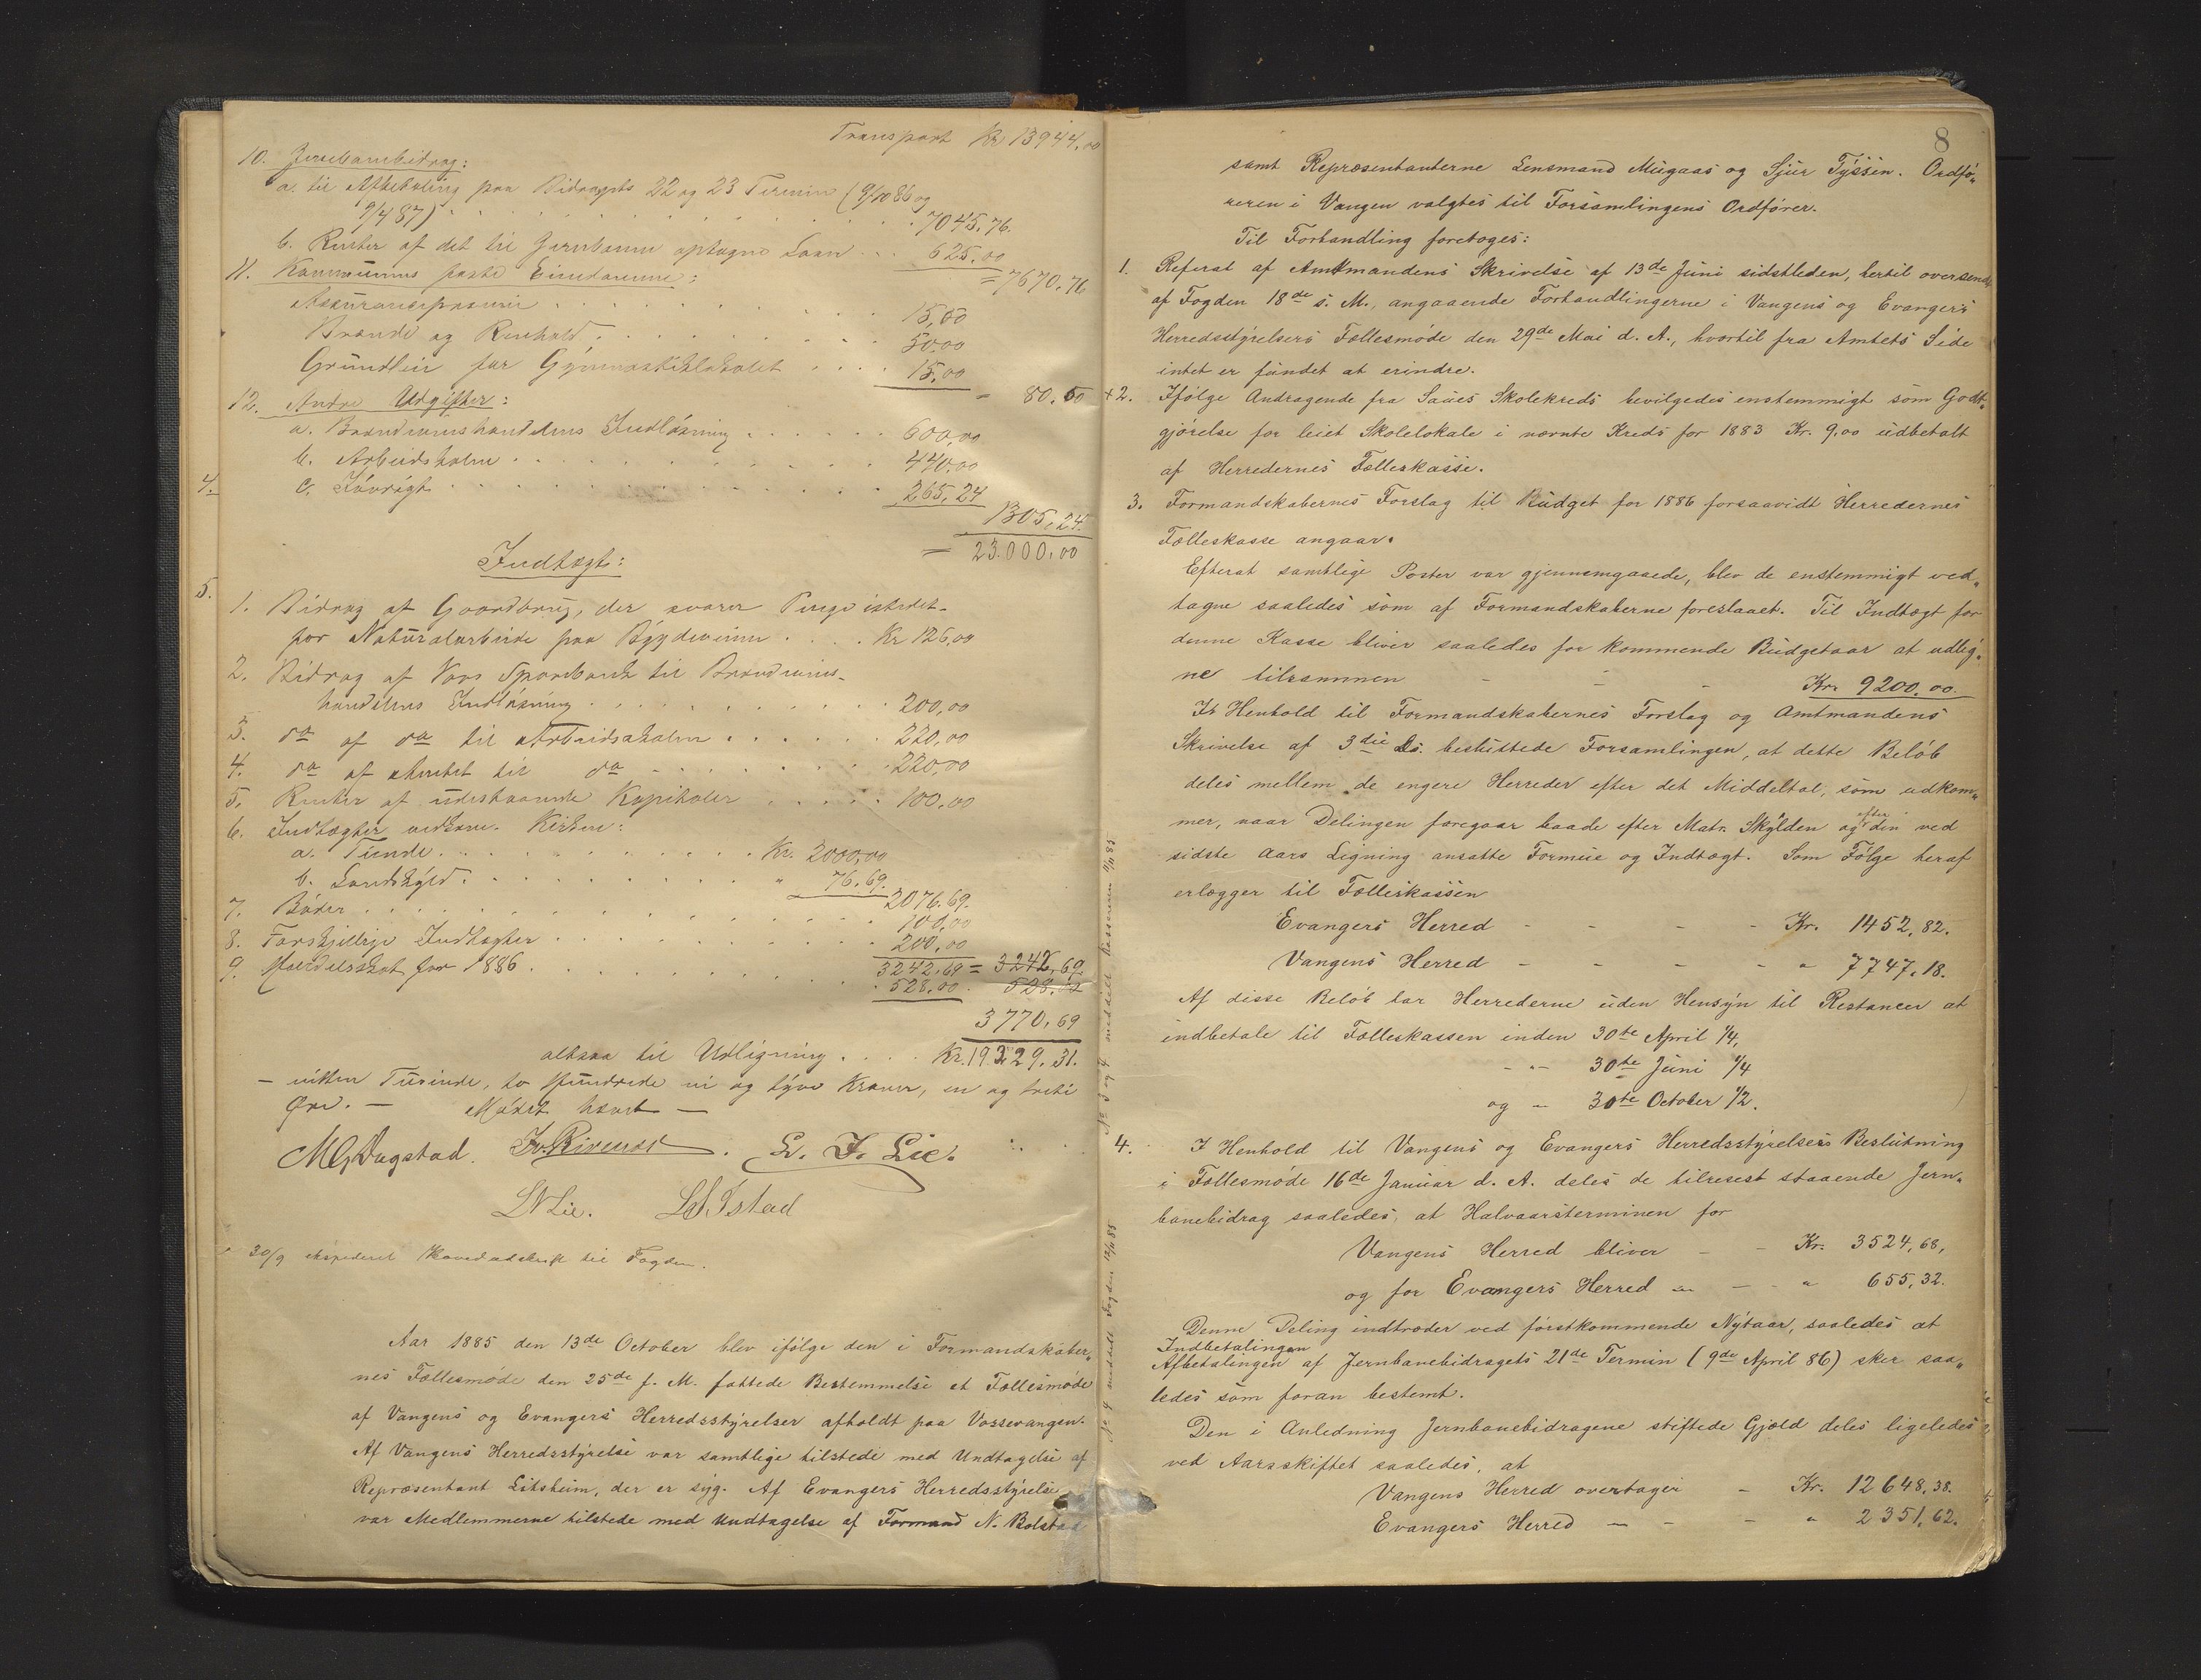 Transport Kr 13944,00
10. Jernbanebidrag:
a. til Afbetaling paa Bidragets 22 og 23 Termin (9/10 86 og
9/4 87) . . . 7045,76.
b. Renter af det til Jernbanen optagne Laan . . . 625,00
= 7670,76
11. Kommunens faste Eiendomme:
Assurancepræmie . . . 15,00
Brænde og Renhold . . . 50,00
Grundleie for Gymnastiklokalet . . . 15,00
= 80,00
12. Andre Udgifter:
a. Brændevinshandelens Indløsning . . . 600,00
b. Arbeidsskolen . . . 440,00
4. c. Iøvrigt . . . 265,24
1305,24
= 23.000,00
Indtægt:
5.
1. Bidrag af Gaardbrug, der svarer Penge istedet-
for Naturalarbeide paa Bygdeveiene . . . Kr 126,00
2. Bidrag af Vors Sparebank til Brændevins-
handelens Indløsning . . . 200,00
3. do af do til Arbeidsskolen . . . 220,00
4. do af Amtet til do . . . 220,00
5. Renter af udestaaende Kapitaler . . . 100,00
6. Indtægter vedkom. Kirken:
a. Tiende . . . Kr. 2000,00
b. Landskyld . . . " 76,69.
2076,69.
7. Bøder . . . 100,00
8. Forskjellige Indtægter . . . 200,00
3242,69 = 3242,69
9. Hundeskat for 1886 . . . 528,00 . 528,00
3770,69
altsaa til Udligning . . . Kr. 19229,31.
— nitten Tusinde, to Hundrede ni og tyve Kroner, en og treti
Øre. — Mødet hævet —
MGDagstad. L. J. Lie.
LNLie.
30/9 expederet Hovedudskrift til Fogden.
Aar 1885 den 13de October blev ifølge den i Formandskaber-
nes Fællesmøde den 25de f. M. fattede Bestemmelse et Fællesmøde
af Vangens og Evangers Herredsstyrelser afholdt paa Vossevangen.
Af Vangens Herredsstyrelse var samtlige tilstede med Undtagelse af
Repræsentant Litsheim, der er syg. Af Evangers Herredsstyrelse
var Medlemmerne tilstede med Undtagelse af Formand N. Bolstad
8
samt Repræsentanterne Lensmand Mugaas og Sjur Tyssen. Ordfø-
reren i Vangen valgtes til Forsamlingens Ordfører.
Til Forhandling foretoges:
1. Referat af Amtmandens Skrivelse af 13de Juni sidstleden, hertil oversendt
af Fogden 18de s. M., angaaende Forhandlingerne i Vangens og Evangers
Herredsstyrelsers Fællesmøde den 29de Mai d. A., hvortil fra Amtets Side
intet er fundet at erindre.
+ 2. Ifølge Andragende fra Saues Skolekreds bevilgedes enstemmigt som Godt-
gjørelse for leiet Skolelokale i nævnte Kreds for 1883 Kr. 9,00 udbetalt
af Herredernes Fælleskasse.
3. Formandskabernes Forslag til Budget for 1886 forsaavidt Herredernes
Fælleskasse angaar.
Efterat samtlige Poster var gjennemgaaede, blev de enstemmigt ved-
tagne saaledes som af Formandskaberne foreslaaet. Til Indtægt for
denne Kasse bliver saaledes for kommende Budgetaar at udlig-
ne tilsammen - - - Kr. 9200,00.
I Henhold til Formandskabernes Forslag og Amtmandens
Skrivelse af 3die ds. besluttede Forsamlingen, at dette Beløb
deles mellem de engere Herreder efter det Middeltal, som udkom-
mer, naar Delingen foregaar baade efter Matr. Skylden og efter den ved
sidste Aars Ligning ansatte Formue og Indtægt. Som Følge heraf
erlægger til Fælleskassen
Evangers Herred - - - Kr. 1452,82.
Vangens Herred - - - " 7747,18.
Af disse Beløb har Herrederne uden Hensyn til Restancer at
indbetale til Fælleskassen inden 30te April 1/4,
- " - 30te Juni 1/4
og - 30te October 1/2.
No 3 og 4 meddelt Kassereren 11/11 85
4. I Henhold til Vangens og Evangers Herredsstyrelsers Beslutning
i Fællesmøde 16de Januar d. A. deles de tilresest staaende Jern-
banebidrag saaledes, at Halvaarsterminen for
Vangens Herred bliver - - Kr. 3524,68,
og for Evangers Herred " - - " 655,32.
No 4 meddelt Fogden 12/11 85
Denne Deling indtræder ved førstkommende Nytaar, saaledes at
Indbetalingen
Afbetalingen af Jernbanebidragets 21de Termin (9de April 86) sker saa-
ledes som foran bestemt.
Den i Anledning Jernbanebidragene stiftede Gjæld deles ligeledes
ved Aarsskiftet saaledes, at
Vangens Herred overtager - Kr. 12648,38.
Evangers Herred — - - " 2351,62.